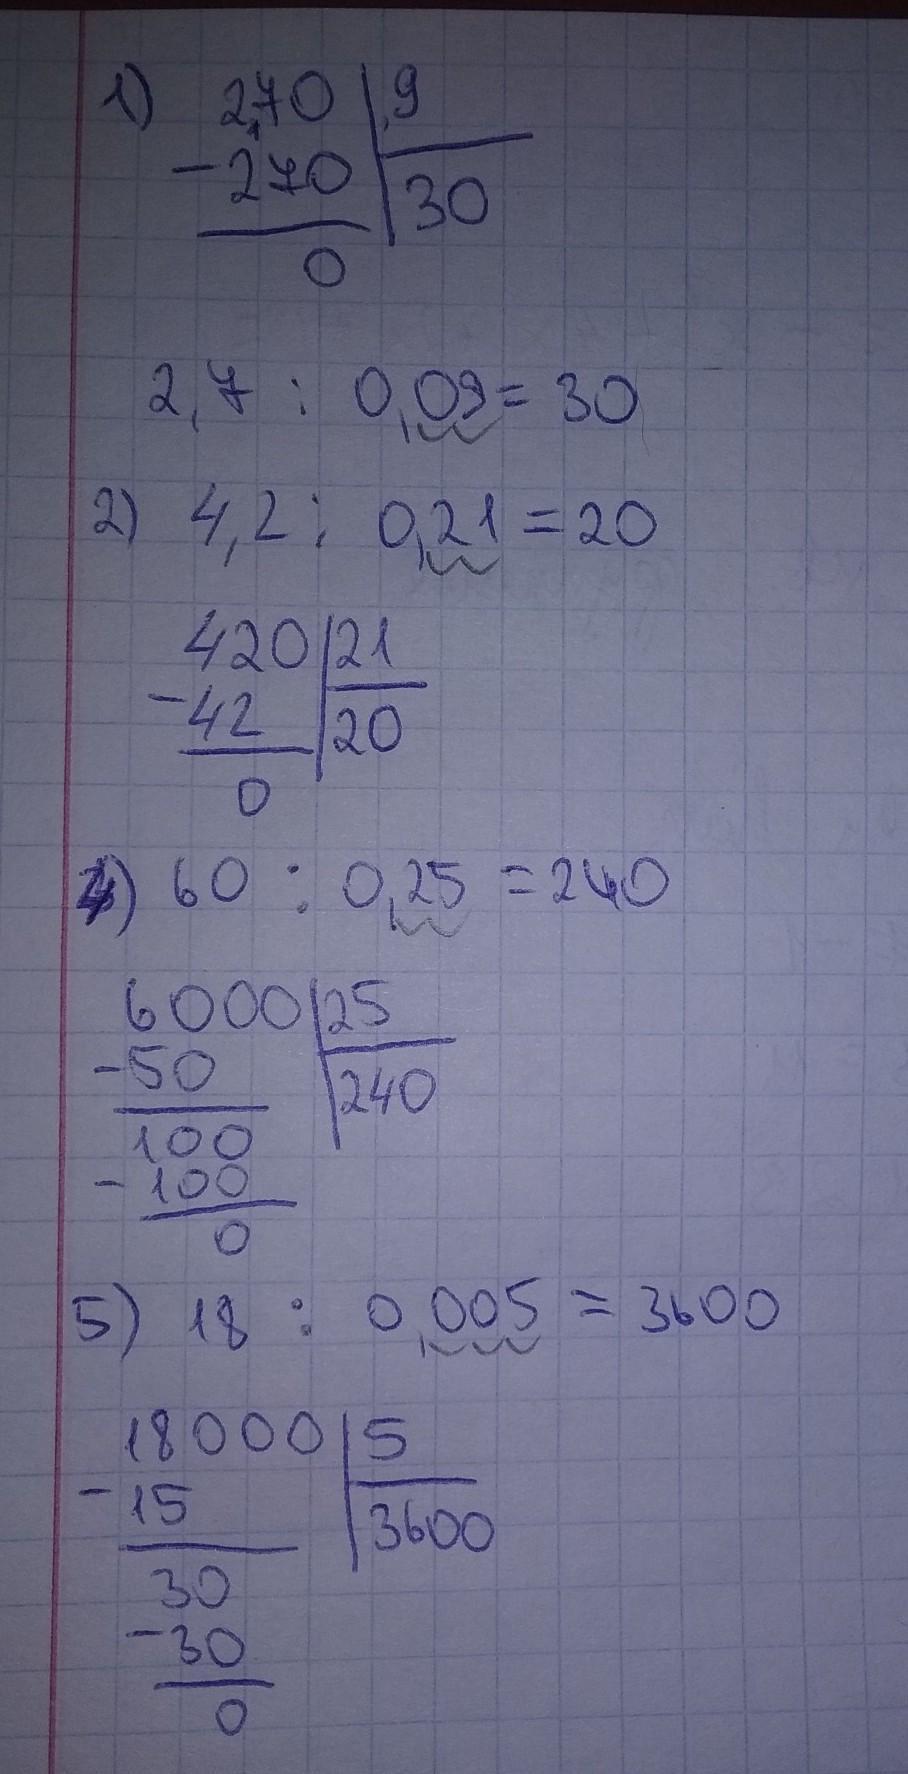 1) 2,70 9
-270 30
0
2,7 : 0,09 = 30
2) 4,2 : 0,21 = 20
420 21
-42 20
0
4) 60 : 0,25 = 240
6000 25
-50 240
100
-100
0
5) 18 : 0,005 = 3600
18000 5
-15 3600
30
-30
0